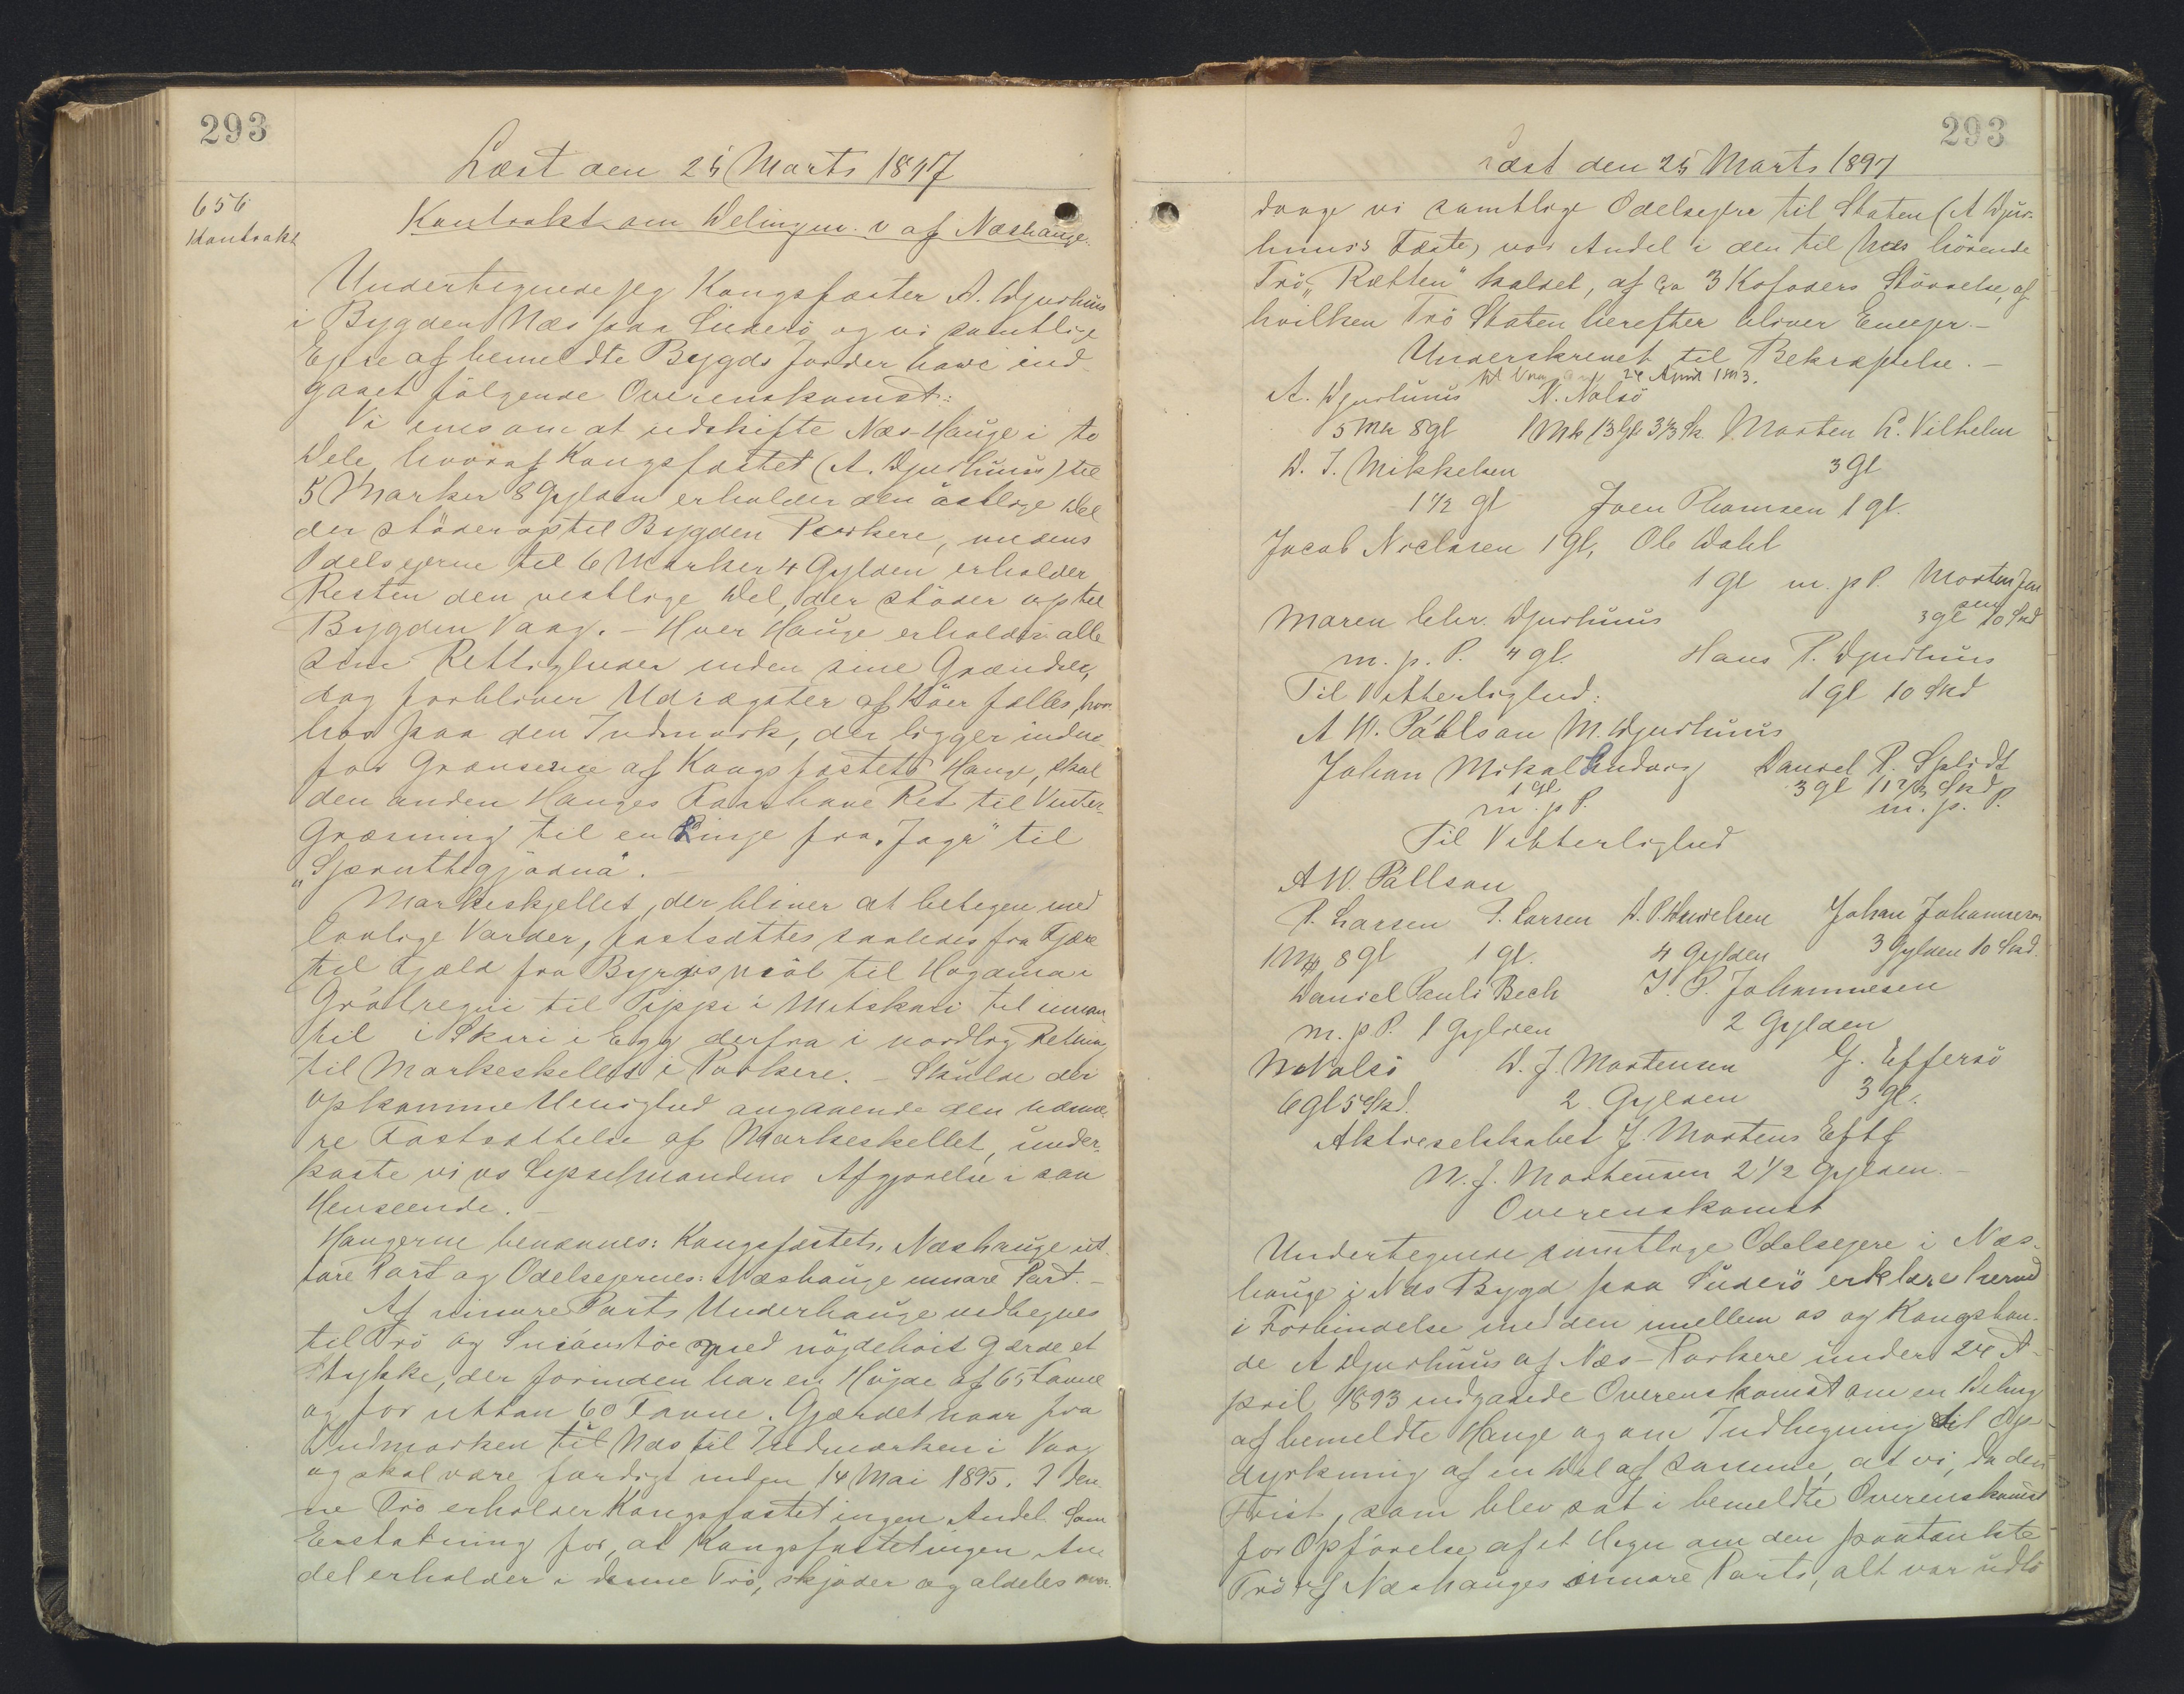 293
Læst den 25 Marts 1897
656
Kontrakt
Kontrakt om Delingen. v af Næshauge.
Undertegnede jeg Kongsfæster A. Djurhuus
i Bygden Næs paa Suderö og vi samtlige
Ejere af bemeldte Bygds Jorder have ind
gaaet fölgende Overenskomst:
Vi ens om at udskifte Næs-Hauge i to
Dele, hvoraf Kongsfæstet (A. Djurhuus) til
5 Marker 8 Gylden erholder den östlige Del
der stöder op til Bygden Porkere, medens
Odelsejerne til 6 Marker 4 Gylden erholder
Resten den vestlige Del, der stöder op til
Bygden Vaag. - Hver Hauge erholder alle
sine Rettigheder inden sine Grændser,
dog forbliver Udrægster af Köer fælles, hvor
hos paa den Indmark, der ligger inden
for Grænserne af Kongsfæstets Hauge, skal
den anden Hauges Faar have Ret til Vinter-
Græsning til en Linje fra "Jagr" til
"Spruttegjödna".
Markeskjellet, der bliver at betegne med
lovlige Varder, fastsættes saaledes fra Fjære
til Fjæld fra Byrgisniöl til Hogama i
Grótregni til Pippi i Mitskari til innan
til i Skari i Egg derfra i nordlig Retning
til Markeskellet i Porkere. - Skulde der
opkomme Uenighed angaaende den nærme
re Fastsættelse af Markeskellet, under-
kaste vi os Sysselmandens Afgjörelse i saa
Henseende. -
Haugerne benævnes: Kongsfæstets: Næshauge ut
tare Part og Odelsejernes: Næshauge innare Part. -
Af innare Parts Underhauge indhegnes
til Trö og med nögdehöit Gærde et
Stykke, der forinden har en Höjde af 65 Favne
og for uttan 60 Favne. Gjærdet naar fra
Indmarken til Næs til Indmarken i Vaag
og skal være færdigt inden 14 Mai 1895. I den
ne Trö erholder Kongsfæstet ingen Andel. Som
Erstatning for, at Kongsfæstet ingen An
del erholder i denne Trö, skjöder og aldeles over.
293
Læst den 25 Marts 1897
drage vi samtlige Odelsejere til Staten (A Djur-
huus's Fæste) vor Andel i den til Næs hörende
Trö "Rætten" kaldet, af Ca 3 Kofoders Störrelse, af
hvilken Trö Staten herefter bliver Eneejer. -
Underskrevet til Bekræftelse. -
24 April 1893.
A. Djurhuus N. Nolsö
5 Mk 8 gl 1 Mk 13 Gl 3 1/3 Sk Morten K. Vilhelm
D. J. Mikkelsen 3 Gl
1 1/2 gl Joen Thomsen 1 gl.
Jacob Niclasen 1 Gl, Ole Dahl
1 gl m. p P. Morten Jen
sen
Maren Chr. Djurhuus 3 gl 10 Skd
m. p. P. 4 gl. Hans P. Djurhuus
Til Vitterlighed: 1 gl 10 Skd
A W. Pállson M. Djurhuus
Johan Mikal Ludvig Daniel P. Splidt
1 gl 3 gl 11 2/3 Skd
m. p P. m. p. P.
Til Vitterlighed
A W. Pállson
P. Larsen P. Larsen D. P. Danielsen Johan Johannesen
1 Mk 8 gl 1 gl. 4 Gylden 3 Gylden 10 Skd.
Daniel Pauli Bech J. P. Johannesen
m. p P. 1 Gylden 2 Gylden
N Nolsö D. J. Mortensen G. Effersö
6 gl 5 Skd. 2 Gylden 3 gl.
Aktieselskabet J. Mortens Eftf
M. J. Mortensen 2 1/2 Gylden. -
Overenskomst
Undertegnede samtlige Odelsejere i Næs-
hauge i Næs Bygd paa Suderö erklære herved
i Forbindelse med den imellem os og Kongsbon-
de A Djurhuus af Næs-Porkere under 24 A-
pril 1893 indgaaede Overenskomst om en Deling
af bemeldte Hauge og om Indhegning til Op-
dyrkning af en Del af samme, at vi, da den
Frist, som blev sat i bemeldte Overenskomst
for Opförelse af et Hegn om den paatænkte
Trö af Næshauges innare Parts, alt var udlö